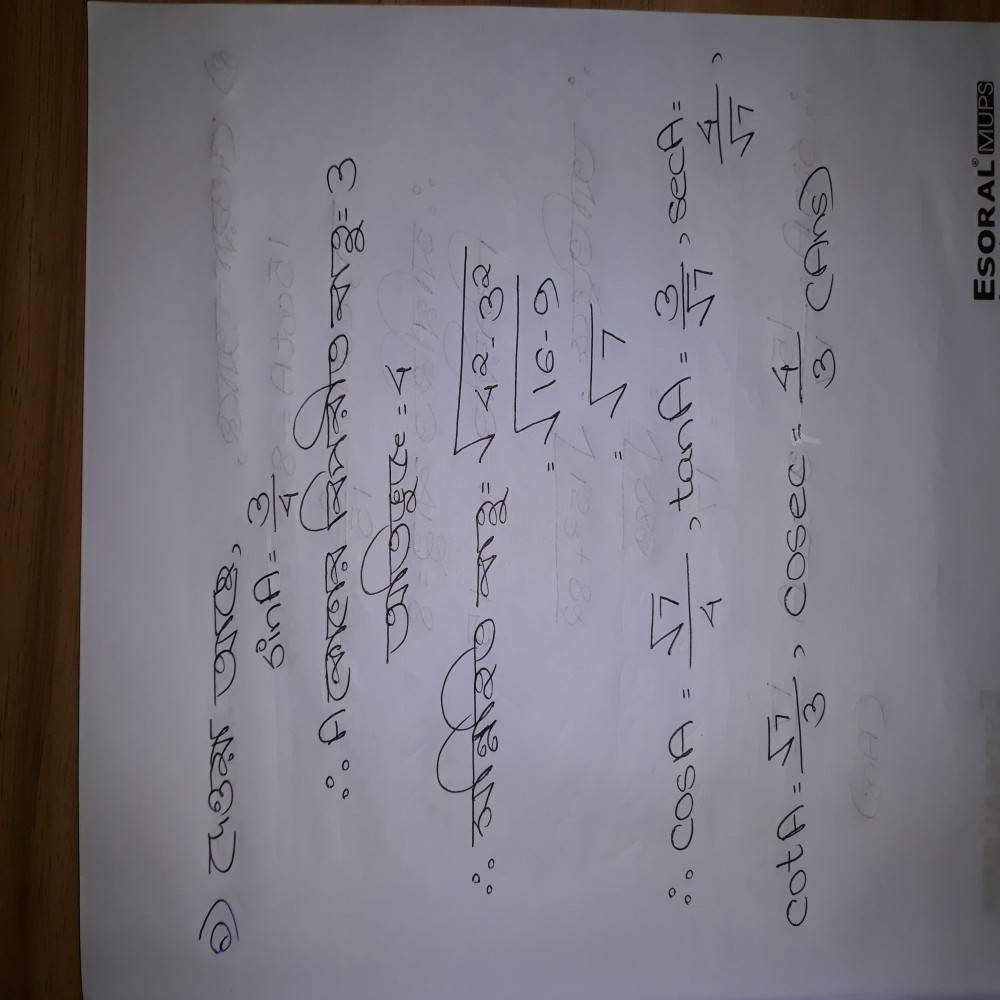 ১) দেওয়া আছে,
sinA = 3/4
∴ A কোণের বিপরীত বাহু = 3
অতিভুজ = 4
∴ সন্নিহিত বাহু = √4² - 3²
= √16 - 9
= √7
∴ cosA = √7/4, tanA = 3/√7, secA = 4/√7,
cotA = √7/3, cosec = 4/3 (Ans)
ESORAL® MUPS